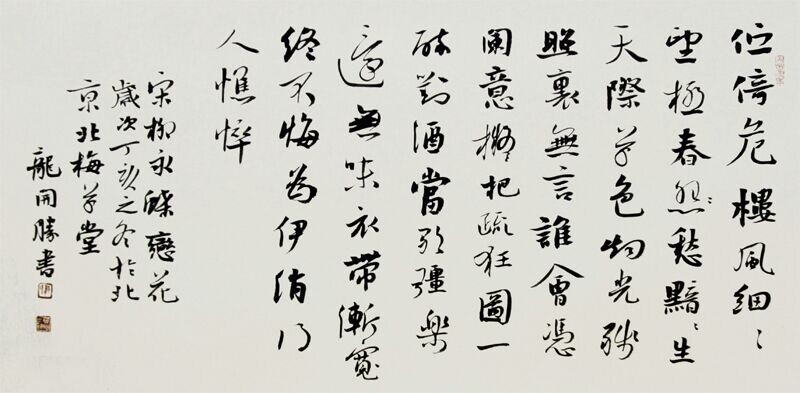 伫倚危樓風細〻
望極春愁黯〻生
天際草色烟光殘
照裏無言誰會憑
闌意擬把疏狂圖一
醉對酒當歌彊樂
還無味衣帶漸寬
終不悔為伊消得
人憔悴
宋柳永蝶戀花
歲次丁亥之冬於北
京北梅草堂
龍開勝書